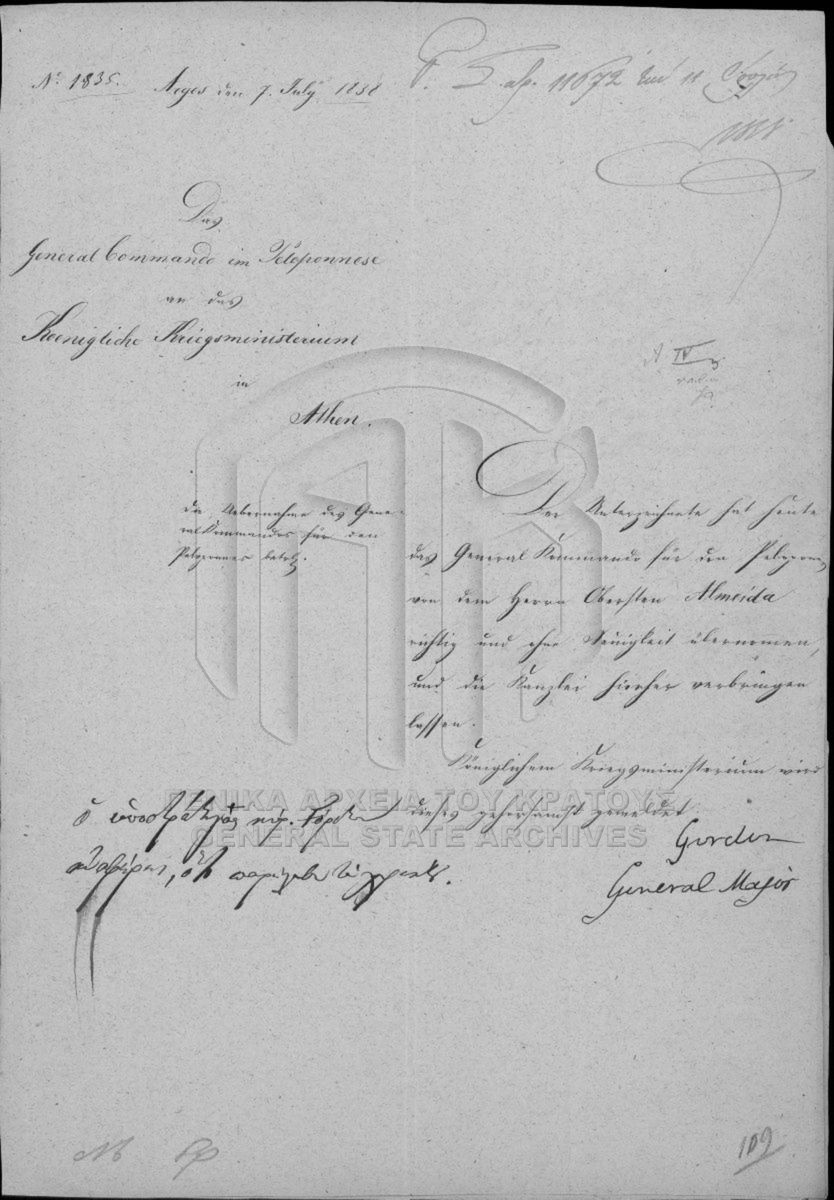 No 1835.
Argos den 7. July 1838
αρ. 11672
Das
General Commando im Peloponnese
an das
Koenigliche Kriegsministerium
in
Athen.
die Uebernahme des Gene-
ral Kommandos für den
Peloponnes betrf.
Der Unterzeichnete hat heute
das General Kommando für den Peloponnes
von dem Herrn Obersten Almeida
richtig und ohne übernomen,
und die Kanzlei hierher verbringen
lassen.
Königlichem Kriegsministerium wird
dieses gehorsamst gemeldet
Gordon
General Major
ὁ ὑποστράτηγος κύρ. Γόρδων
ὅτι παρέλαβε
109
ΓΕΝΙΚΑ ΑΡΧΕΙΑ ΤΟΥ ΚΡΑΤΟΥΣ
GENERAL STATE ARCHIVES